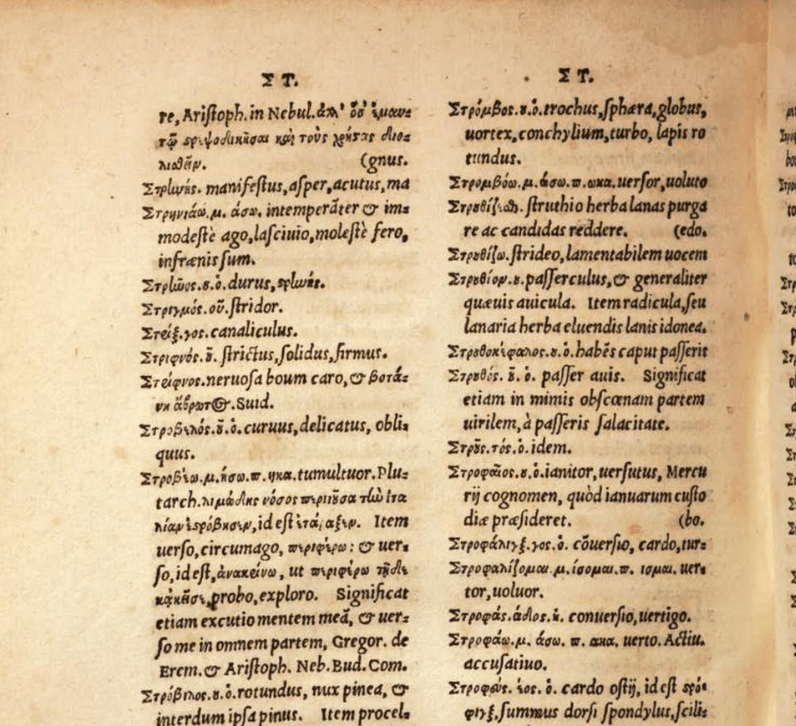 ΣΤ.
re, Ariſtoph. in Nebul. ἀλλ' ὅσ' ἐμαυ=
τῷ στρεψοδικῆσαι καὶ τοὺς χρήστας διολ
λισθεῖν. (gnus.
Στρηνής. manifeſtus, aſper, acutus, ma
Στρηνιάω. μ. άσω. intemperāter & im=
modeſtè ago, laſciuio, moleſtè fero,
infrænis ſum.
Στρῆνος. ȣ. ὁ. durus, στρηνής.
Στριγμός. οῦ. ſtridor.
Στρίξ. γος. canaliculus.
Στριφνός. ȣ̃. ſtrictus, ſolidus, firmus.
Στρίφνος. neruoſa boum caro, & βοτά=
νη ἄβρωτος. Suid.
Στροβιλός. ȣ̃. ὁ. curuus, delicatus, obli=
quus.
Στροβέω. μ. ήσω. π. ηκα. tumultuor. Plu=
tarch. λιμώδης νόσος περιϊοῦσα τὴν Ιτα
λίαν ἐςρόβησεν, id eſt Item
uerſo, circumago, περιφέρω: & uer=
ſo, id eſt, ἀνακείνω, ut περιφέρω τῇδε
κἀκεῖσε, probo, exploro. Significat
etiam excutio mentem meā, & uer=
ſo me in omnem partem, Gregor. de
Erem. & Ariſtoph. Neb. Bud. Com.
Στρόβιλος. ȣ. ὁ. rotundus, nux pinea, &
interdum ipſa pinus. Item procel=
ΣΤ.
Στρόμβος. ȣ. ὁ. trochus, ſphæra, globus,
uortex, conchylium, turbo, lapis ro
tundus.
Στρομβόω. μ. ώσω. π. ωκα. uerſor, uoluto
Στρȣθίζειν. ſtruthio herba lanas purga
re ac candidas reddere. (edo.
Στρȣθίζω. ſtrideo, lamentabilem uocem
Στρȣθίον. ȣ. paſſerculus, & generaliter
quæuis auicula. Item radicula, ſeu
lanaria herba eluendis lanis idonea.
Στρȣθοκέφαλος. ȣ. ὁ. habēs caput paſſeris
Στρȣθός. ȣ̃. ὁ. paſſer auis. Significat
etiam in mimis obſcœnam partem
uirilem, à paſſeris ſalacitate.
Στρȣ̃ς. τός. ὁ. idem.
Στροφαῖος. ȣ. ὁ. ianitor, uerſutus, Mercu
rij cognomen, quòd ianuarum cuſto
diæ præſideret. (bo.
Στροφάλιγξ. γος. ὁ. cōuerſio, cardo, tur=
Στροφαλίζομαι. μ. ίσομαι. π. ισμαι. uer=
tor, uoluor.
Στροφάς. άδος. ἡ. conuerſio, uertigo.
Στροφάω. μ. άσω. π. ακα. uerto. Actiu.
accuſatiuo.
Στροφεύς. έος. ὁ. cardo oſtij, id eſt ςρό=
φιγξ, ſummus dorſi ſpondylus, ſcili=